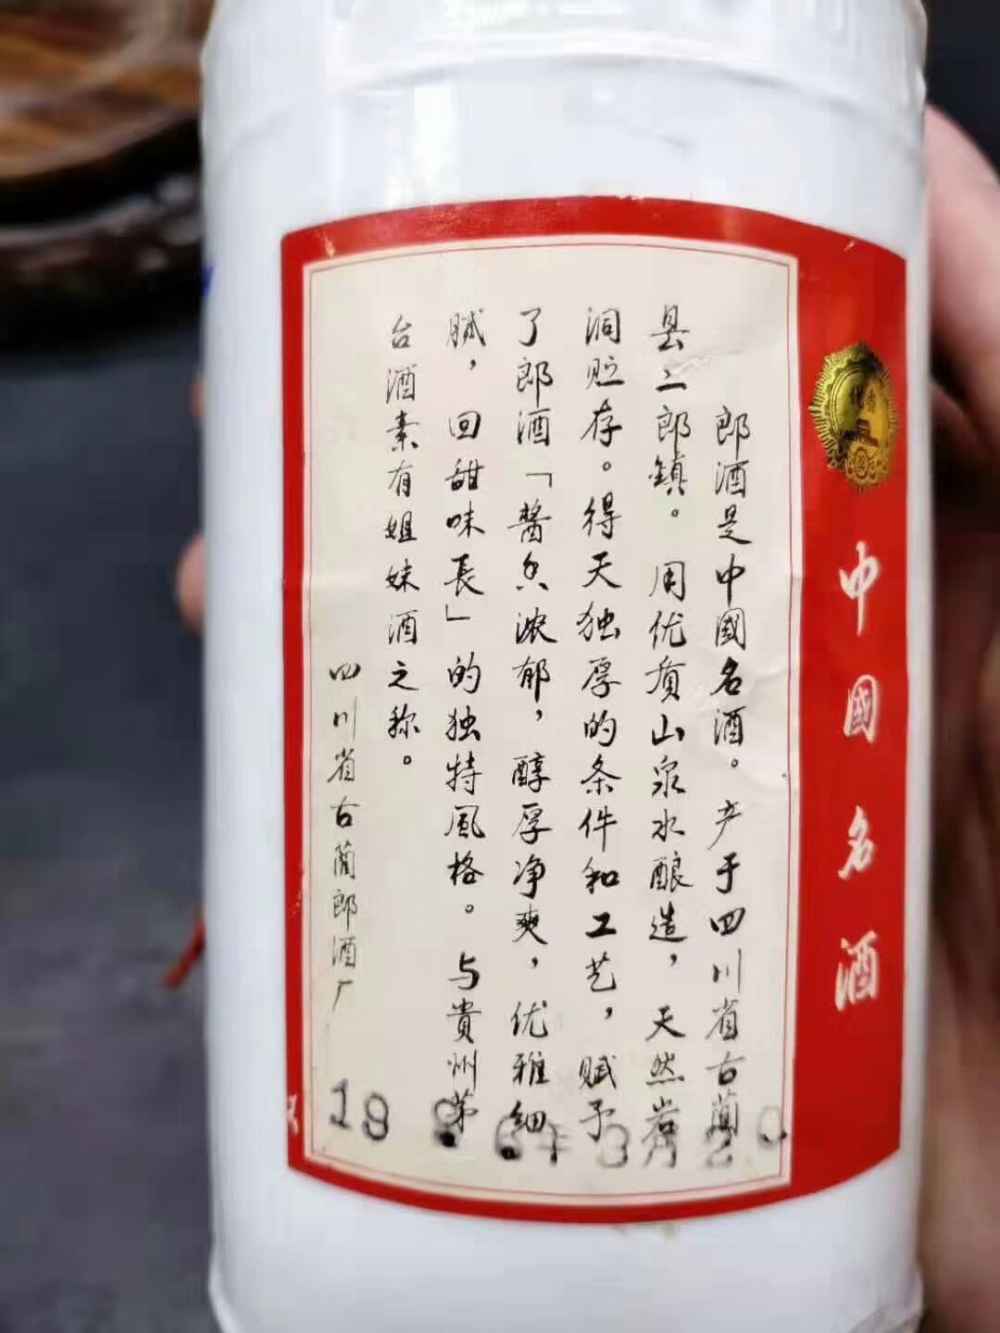 中國名酒
郎酒是中國名酒。产于四川省古藺
县二郎镇。用优质山泉水酿造，天然岩
洞贮存。得天独厚的条件和工艺，赋予
了郎酒「醬香浓郁，醇厚净爽，优雅细
腻，回甜味長」的独特風格。与貴州茅
台酒素有姐妹酒之称。
四川省古藺郎酒厂
1986年3月20